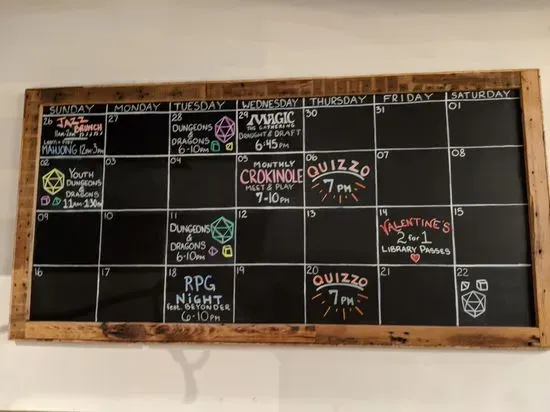 SUNDAY MONDAY TUESDAY WEDNESDAY THURSDAY FRIDAY SATURDAY
26 JAZZ
BRUNCH
11am-2pm
Learn & Play
MAHJONG 12PM-3PM
27
28
DUNGEONS
&
DRAGONS
6-10PM
29
MAGIC
THE GATHERING
DRAUGHT & DRAFT
6:45 PM
30
31
01
02
YOUTH
DUNGEONS
&
DRAGONS
11AM-1:30PM
03
04
05
MONTHLY
CROKINOLE
MEET & PLAY
7-10PM
06
QUIZZO
7PM
07
08
09
10
11
DUNGEONS
&
DRAGONS
6-10PM
12
13
14
VALENTINE'S
2 for 1
LIBRARY PASSES
15
16
17
18
RPG
NIGHT
feat. BEYONDER
6-10PM
19
20
QUIZZO
7PM
21
22